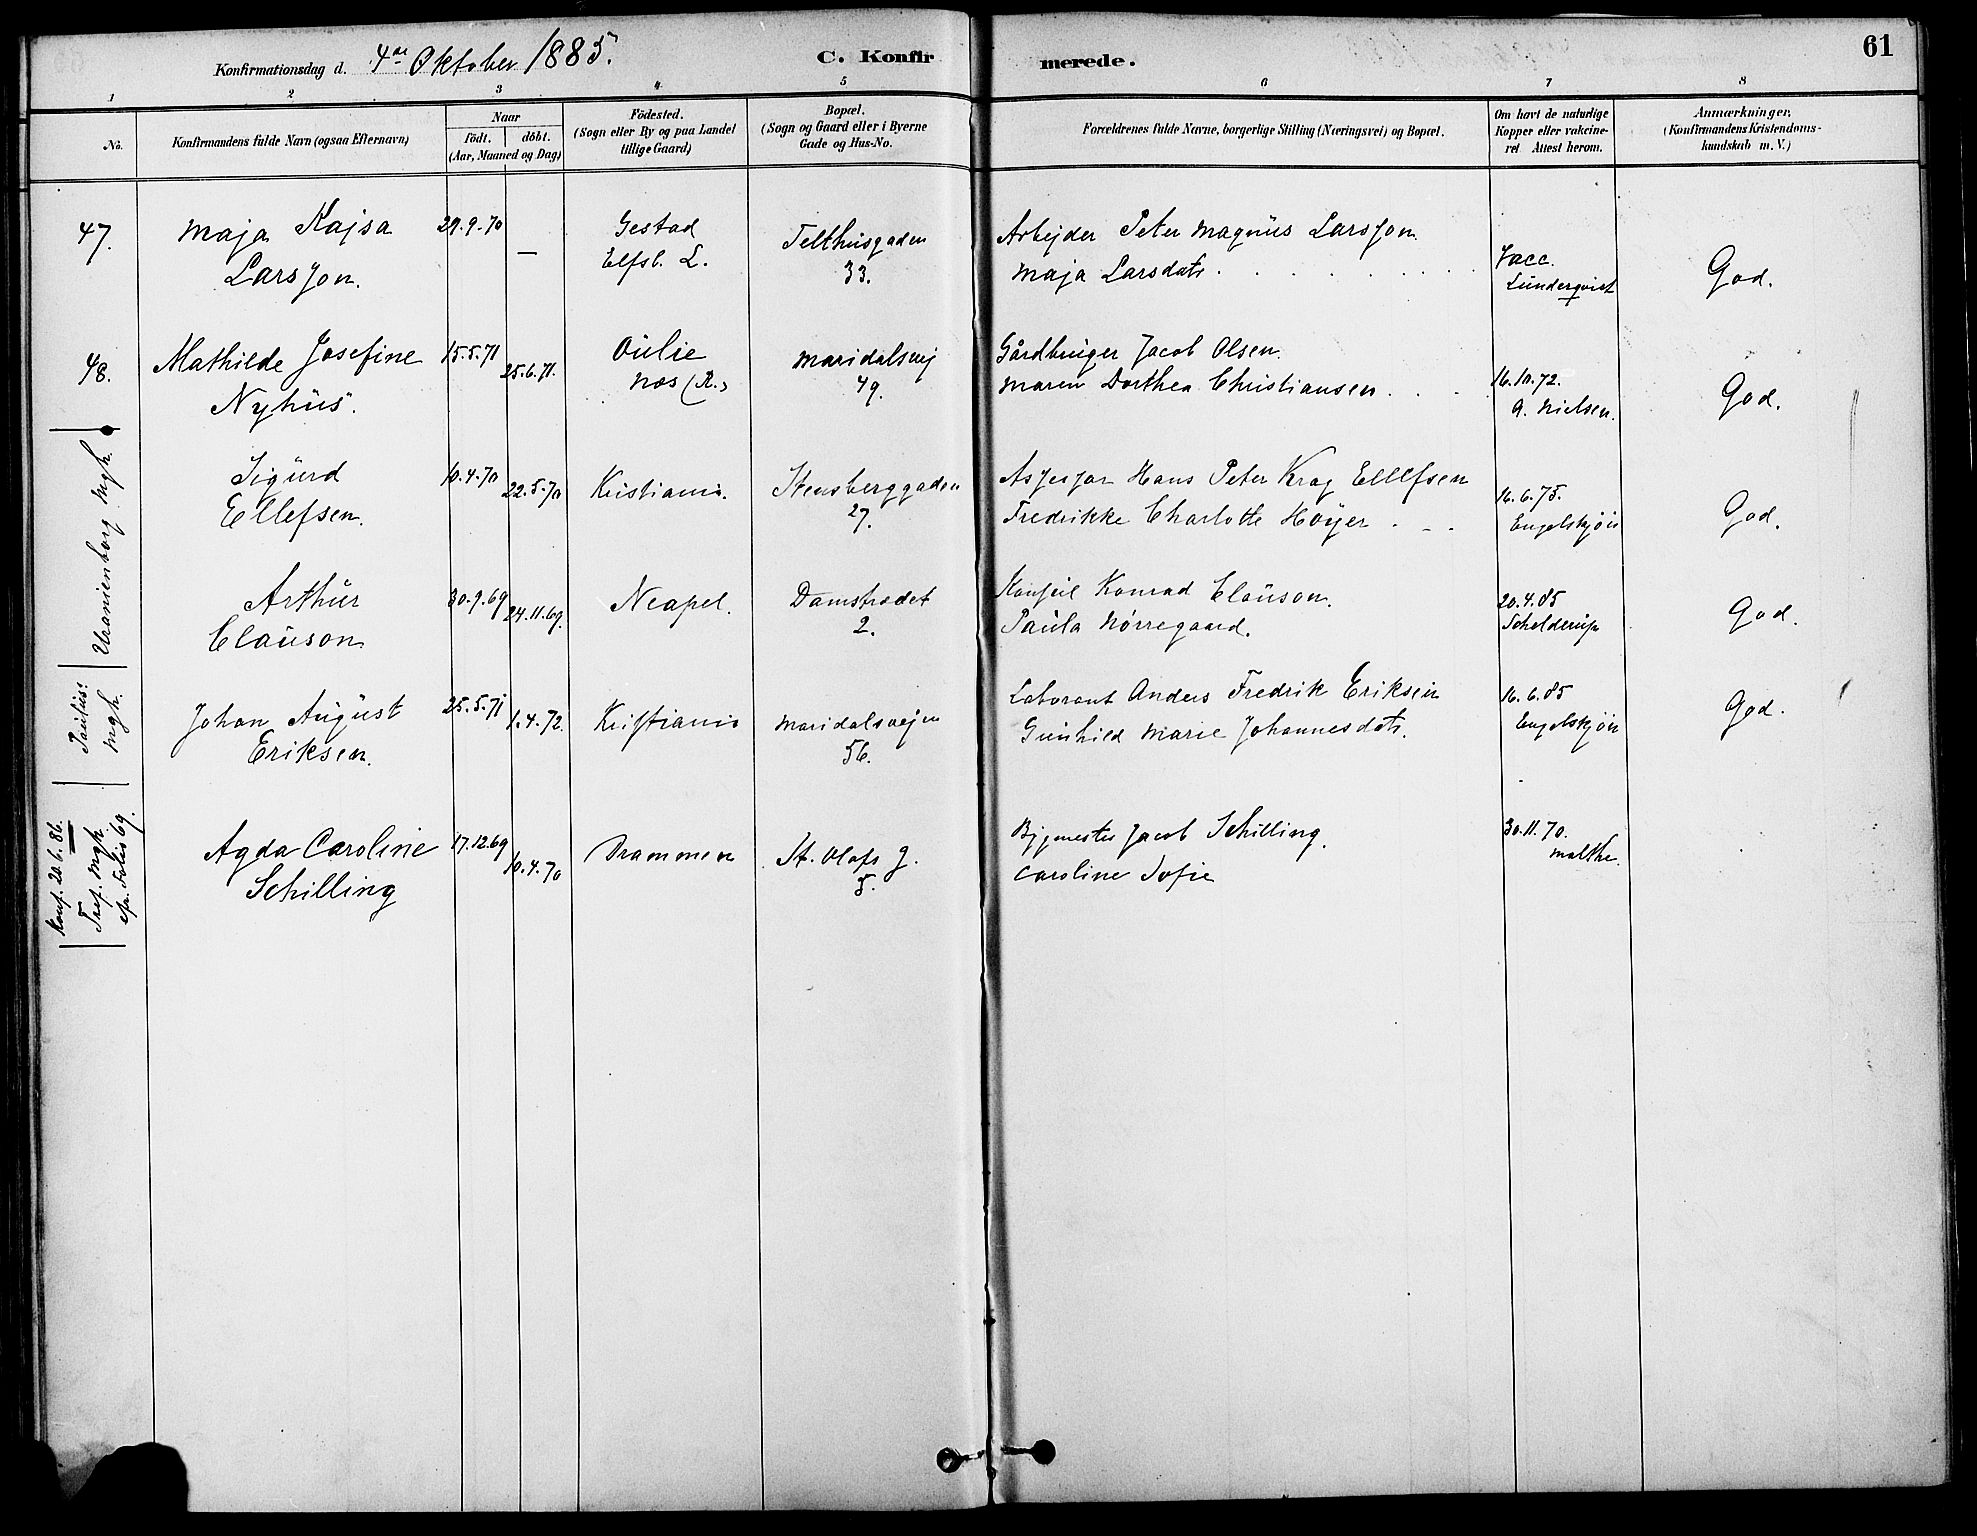 61
Konfirmationsdag d. 4de Oktober 1885. C. Konfirmerede.
1 2 3 4 5 6 7 8
No.
Konfirmandens fulde Navn (ogsaa Efternavn)
Naar
födt. döbt.
(Aar, Maaned og Dag)
Födested.
(Sogn eller By og paa Landet
tillige Gaard)
Bopæl.
(Sogn og Gaard eller i Byerne
Gade og Hus-No.
Forældrenes fulde Navne, borgerlige Stilling (Næringsvei) og Bopæl.
Om havt de naturlige
Kopper eller vakcine-
ret Attest herom.
Anmærkninger,
(Konfirmandens Kristendoms-
kundskab m. V.)
47. Maja Kajsa 29.9.70 — Gestad Telthusgaden Arbejder Peter Magnus Larsson
Larsson. Elfsb. L. 33. Maja Larsdatr. Vacc. Lunderqvist God.
48. Mathilde Josefine 15.5.71 25.6.71. Oulie Maridalsvej Gårdbruger Jacob Olsen.
Nyhus. Næs (R.) 49. Maren Dorthea Christiansen 16.10.72. A. Nielsen. God.
Uranienborg Mgh.
Sigurd 10.4.70 22.5.70 Kristiania. Stensberggaden Assessor Hans Peter Krag Ellefsen
Ellefsen. 27. Fredrikke Charlotte Høyer 16.6.75. Engelskjøn God.
Arthur 30.9.69 24.11.69. Neapel. Damstredet Konsul Konrad Clauson.
Clauson 2. Paula Nørregaard. 20.4.85 Schelderup God.
Paulus: Mgh.
Johan August 25.5.71 1.4.72. Kristiania Maridalsvejen Laborant Anders Fredrik Eriksen
Eriksen. 56. Gunhild Marie Johannesdatr. 16.6.85 Engelskjøn God.
Konf. 20.6.86.
Tref. Mgh.
69.
Agda Caroline 17.12.69 10.4.70 Drammen St. Olafs g. Bygmester Jacob Schilling.
Schilling 5. Caroline Sofie 30.11.70. Malthe.